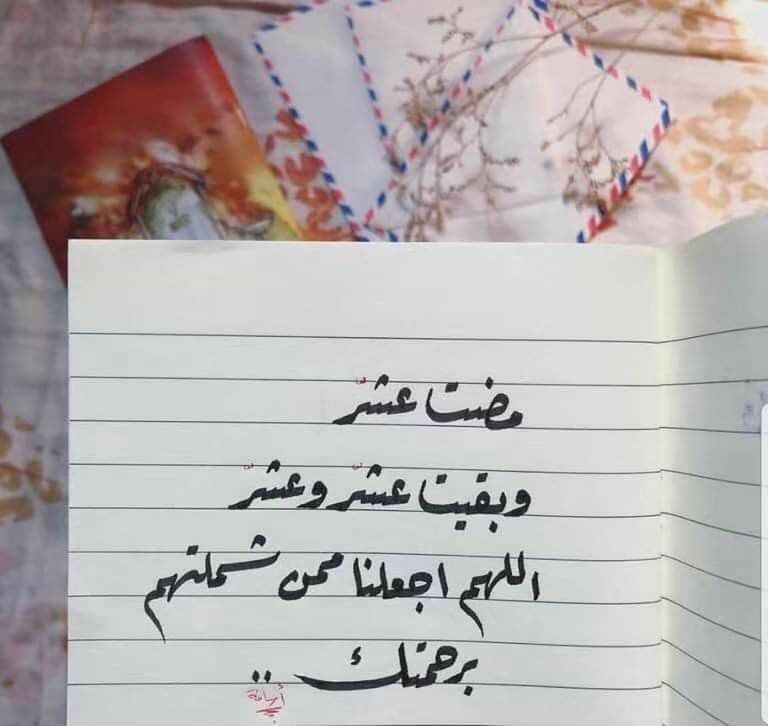 مضت عشرٌ
وبقيت عشرٌ وعشرٌ
اللهم اجعلنا ممن شملتهم
برحمتك ..